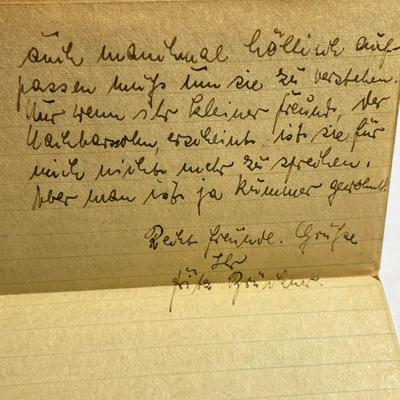 auch manchmal höllisch auf-
passen muß um sie zu verstehen.
Nur wenn ihr kleiner Freund, der
Nachbarssohn, erscheint, ist sie für
mich nicht mehr zu sprechen.
Aber man ist ja Kummer gewohnt.
Recht freundl. Grüße
Ihr
Fritz Brückner.